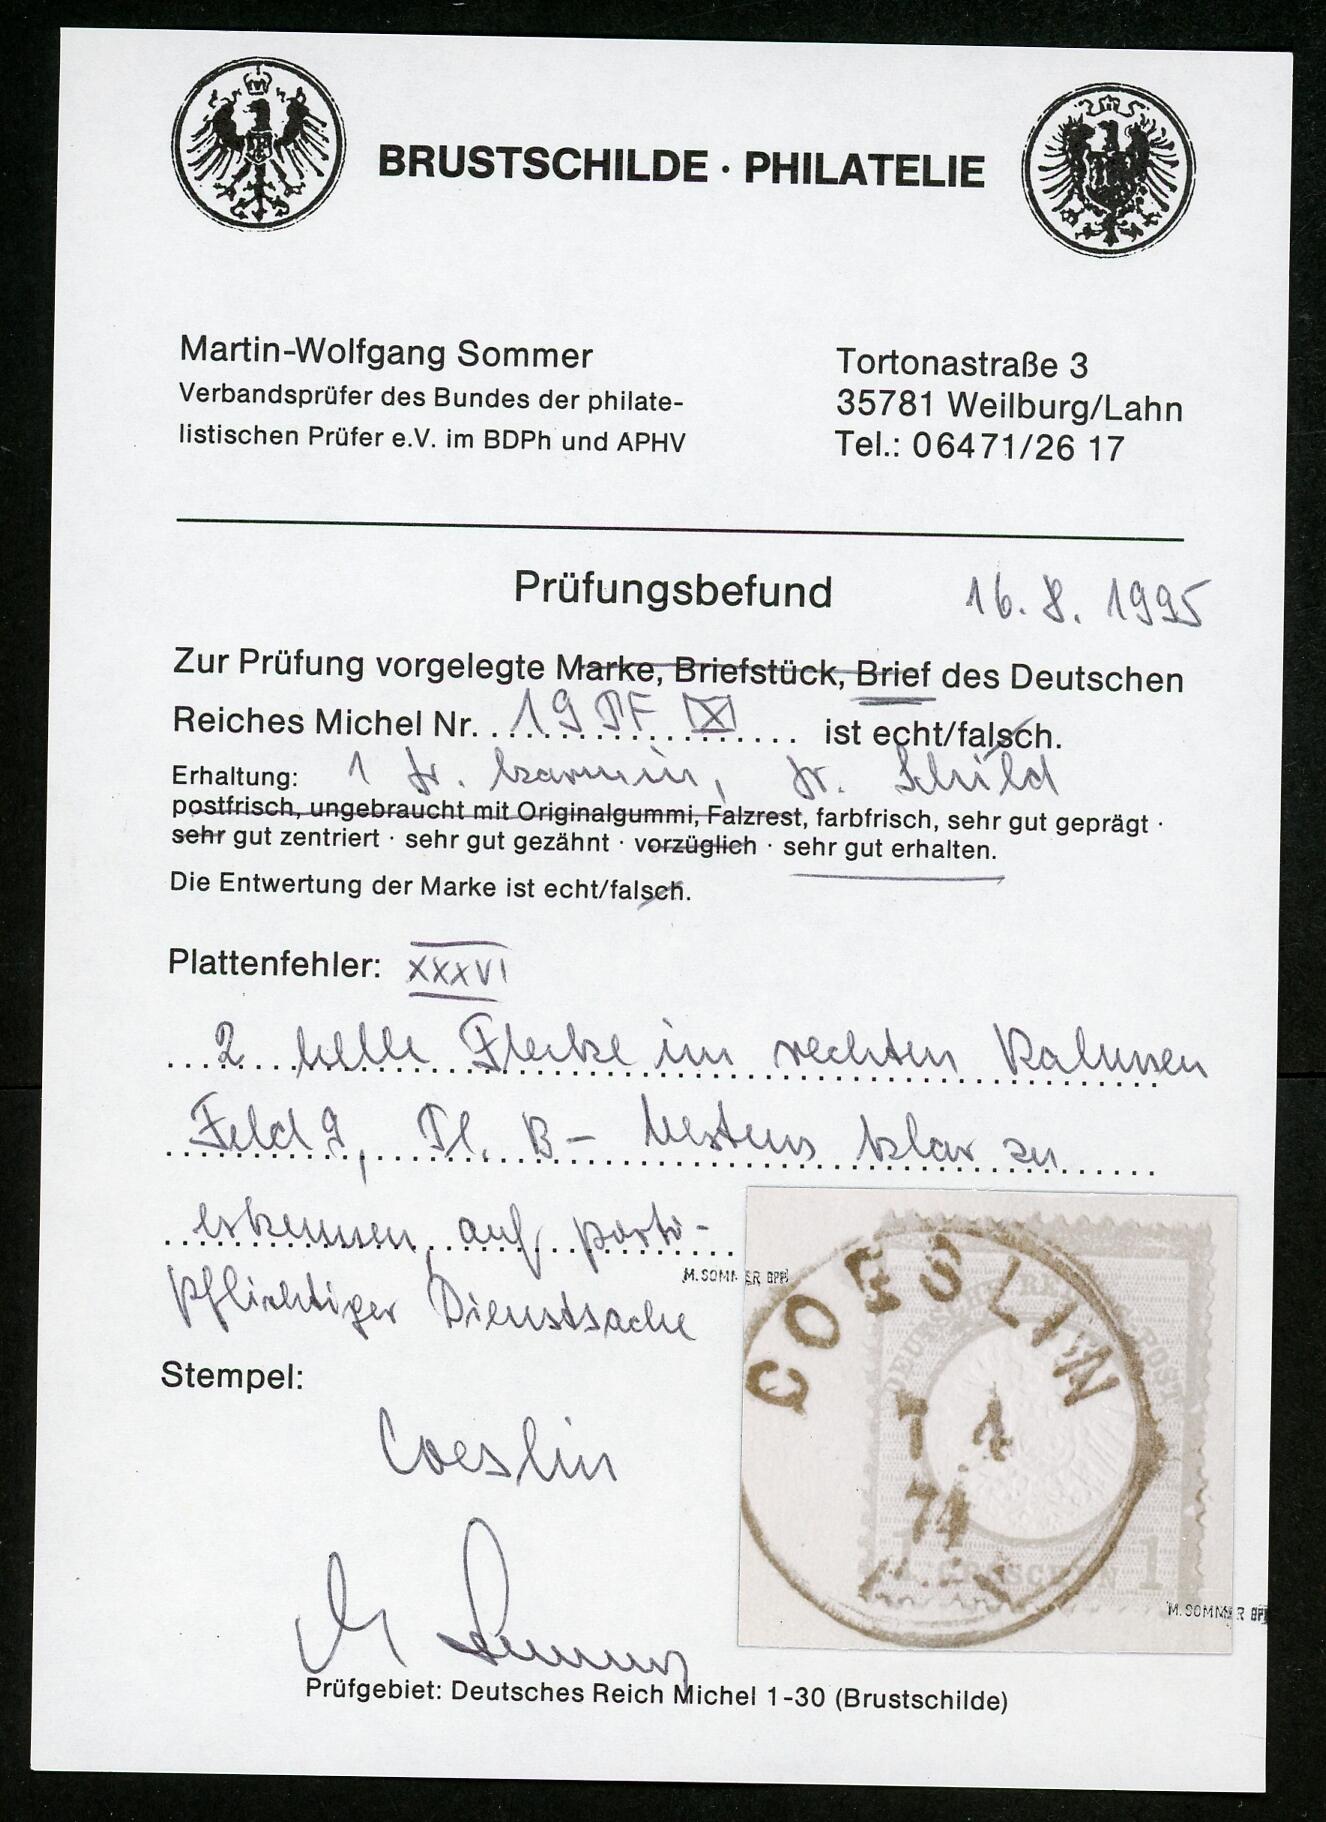 BRUSTSCHILDE · PHILATELIE
Martin-Wolfgang Sommer
Verbandsprüfer des Bundes der philate-
listischen Prüfer e.V. im BDPh und APHV
Tortonastraße 3
35781 Weilburg/Lahn
Tel.: 06471/26 17
Prüfungsbefund 16. 8. 1995
Zur Prüfung vorgelegte Marke, Briefstück, Brief des Deutschen
Reiches Michel Nr. 19 PF ist echt/falsch.
Erhaltung: 1 Gr. karmin, gr. Schild
postfrisch, ungebraucht mit Originalgummi, Falzrest, farbfrisch, sehr gut geprägt ·
sehr gut zentriert · sehr gut gezähnt · vorzüglich · sehr gut erhalten.
Die Entwertung der Marke ist echt/falsch.
Plattenfehler: XXXVI
2 helle Flecke im rechten Rahmen
Feld 9, Pl. B – bestens klar zu
erkennen, auf porto-
pflichtiger Dienstsache
M. SOMMER BPP
Stempel:
Coeslin
COESLIN
7 4
74
DEUTSCHE REICHS-POST
1 GROSCHEN 1
M. SOMMER BPP
M Sommer
Prüfgebiet: Deutsches Reich Michel 1-30 (Brustschilde)